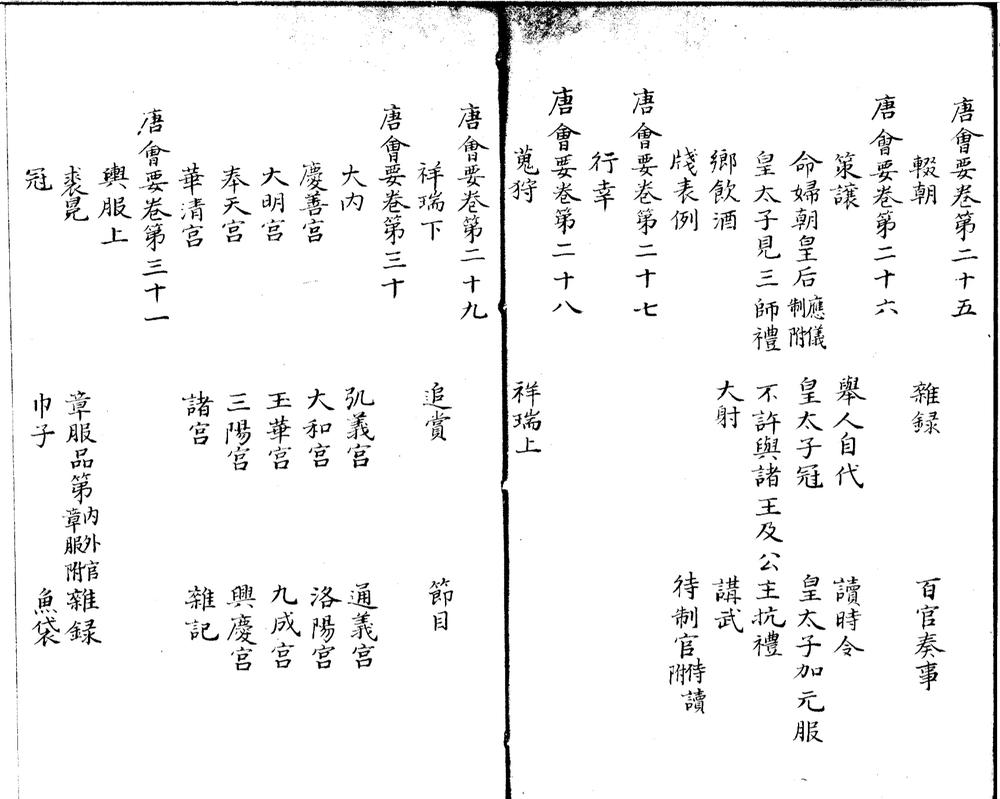 唐會要卷第二十五
輟朝 雜録 百官奏事
唐會要卷第二十六
策讓 舉人自代 讀時令
命婦朝皇后應儀制附 皇太子冠 皇太子加元服
皇太子見三師禮 不許與諸王及公主抗禮
鄉飲酒 大射 講武
牋表例 待制官侍讀附
唐會要卷第二十七
行幸
唐會要卷第二十八
蒐狩 祥瑞上
唐會要卷第二十九
祥瑞下 追賞 節目
唐會要卷第三十
大内 弘義宫 通義宫
慶善宫 大和宫 洛陽宫
大明宫 玉華宫 九成宫
奉天宫 三陽宫 興慶宫
華清宫 諸宫 雜記
唐會要卷第三十一
輿服上
裘冕 章服品第内外官章服附 雜録
冠 巾子 魚袋